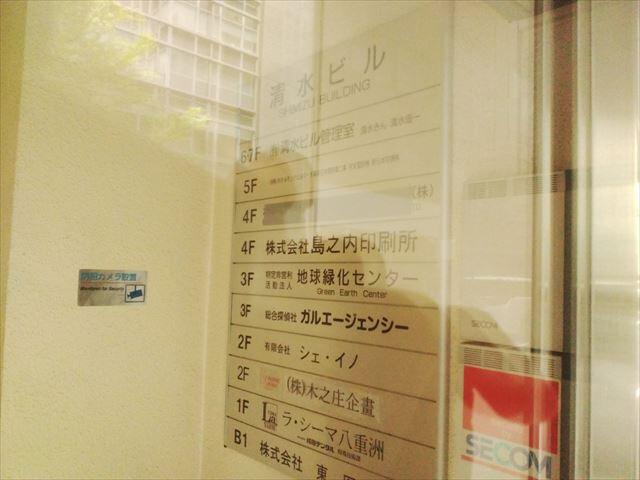 清水ビル
SHIMIZU BUILDING
6・7F ㈲清水ビル管理室
5F
4F (株)
4F 株式会社島之内印刷所
3F 特定非営利活動法人 地球緑化センター
Green Earth Center
3F 総合探偵社 ガルエージェンシー
2F 有限会社 シェ・イノ
2F (株)木之庄企畫
1F ラ・シーマ八重洲
B1 株式会社 東
防犯カメラ設置
SECOM
SECOM